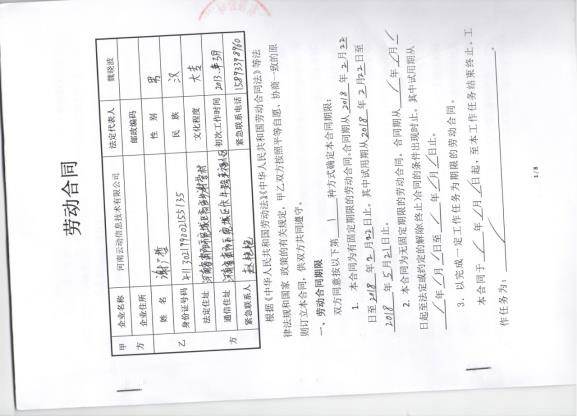 劳动合同
甲方 企业名称 河南云动信息技术有限公司 法定代表人 魏晓波
企业住所 邮政编码
乙方 姓 名 性 别 男
身份证号码 民 族 汉
法定住址 文化程度 大专
通信住址 初次工作时间 2013年3月
紧急联系人 紧急联系电话
根据《中华人民共和国劳动法》《中华人民共和国劳动合同法》等法
律法规和国家、政策的有关规定,甲乙双方按照平等自愿、协商一致的原
则订立本合同,供双方共同遵守。
一、劳动合同期限
双方同意按以下第 1 种方式确定本合同期限:
1. 本合同为有固定期限的劳动合同,合同期从 2018 年 2 月 22
日至 年 2 月 22 日止。其中试用期从 2018 年 2 月 22 日至
2018 年 5 月 21 日止。
2. 本合同为无固定期限的劳动合同,合同期从 / 年 / 月 /
日起至法定或约定的解除(终止)合同的条件出现时止。其中试用期从
/ 年 / 月 / 日至 / 年 / 月 / 日止。
3. 以完成一定工作任务为期限的劳动合同。
本合同于 / 年 / 月 / 日起,至本工作任务结束终止。工
作任务为: / 。
1/8